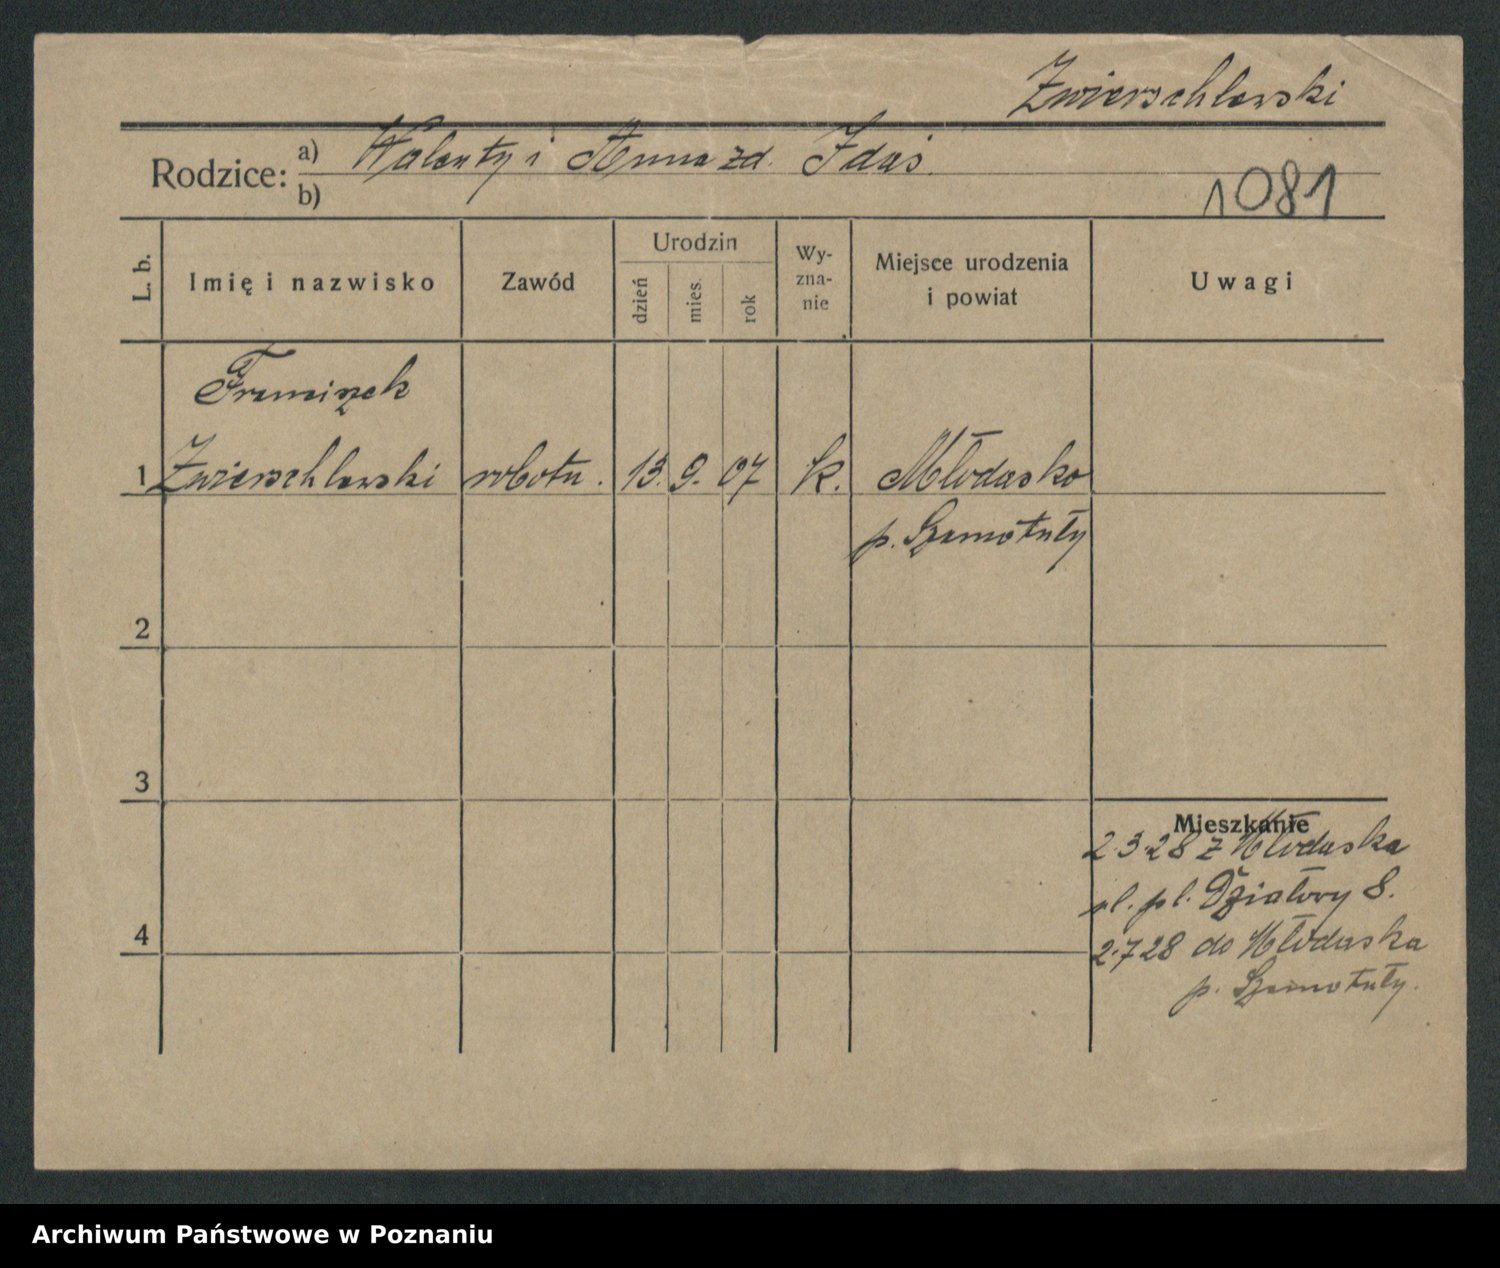 Zwierschlewski
Rodzice: a) Walenty i Anna zd. Idaś.
b)
1081
L. b. Imię i nazwisko Zawód Urodzin dzień mies. rok Wy-zna-nie Miejsce urodzenia i powiat Uwagi
Franciszek
1 Zwierschlewski robotn. 13. 9. 07 k. Młodasko
p. Szamotuły
2
3
Mieszkanie
2.3.28 z Młodaska
pl. Działowy 8.
4
2.7.28 do Młodaska
p. Szamotuły.
Archiwum Państwowe w Poznaniu